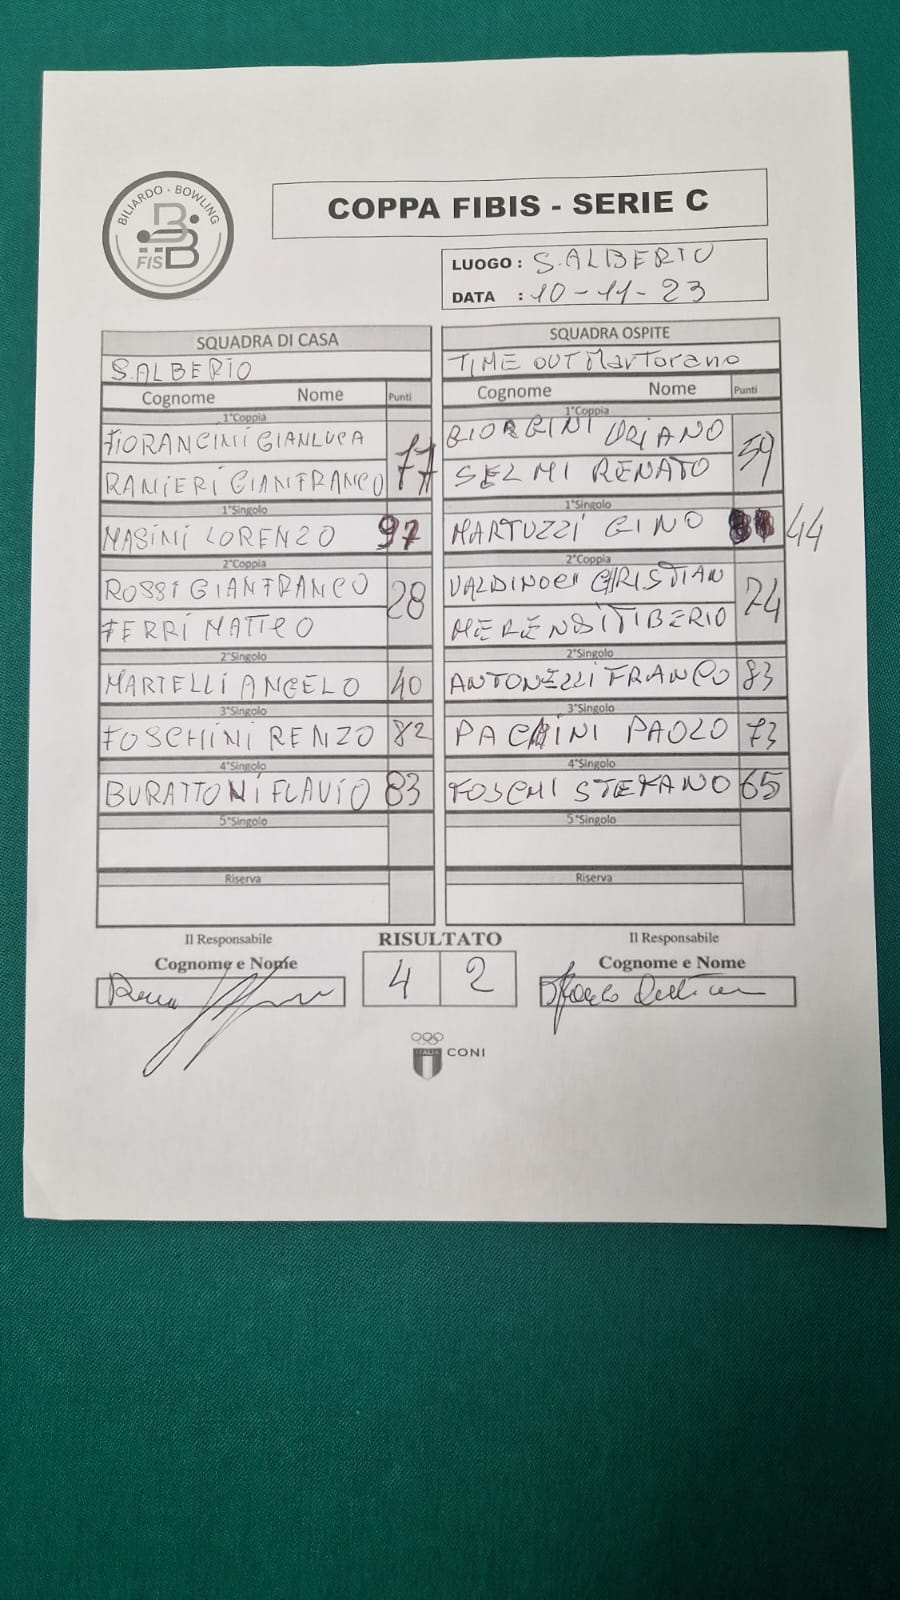 BILIARDO · BOWLING
FISBB
COPPA FIBIS - SERIE C
LUOGO : S. ALBERTO
DATA : 10-11-23
SQUADRA DI CASA
S. ALBERTO
Cognome Nome Punti
1°Coppia
FIORANCINII GIANLUCA
RANIERI GIANFRANCO 77
1°Singolo
MASINI LORENZO 97
2°Coppia
ROSSI GIANFRANCO
FERRI MATTEO 28
2°Singolo
MARTELLI ANGELO 40
3°Singolo
FOSCHINI RENZO 82
4°Singolo
BURATTONI FLAVIO 83
5°Singolo
Riserva
SQUADRA OSPITE
TIME OUT MarTorano
Cognome Nome Punti
1°Coppia
GIORGINI URIANO
SELMI RENATO 59
1°Singolo
MARTUZZI GINO 44
2°Coppia
VALDINOCI CHRISTIAN
MERENSI TIBERIO 74
2°Singolo
ANTONELLI FRANCO 83
3°Singolo
PACHINI PAOLO 73
4°Singolo
FOSCHI STEFANO 65
5°Singolo
Riserva
Il Responsabile
Cognome e Nome
RISULTATO
4 2
Il Responsabile
Cognome e Nome
ITALIA CONI